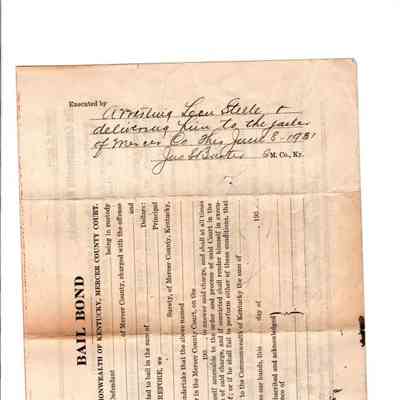 Executed by
arresting Leon Steele &
delivering him to the jailer
of Mercer Co. This June 8 - 1931
Jno
M. Co., Ky.
BAIL BOND
COMMONWEALTH OF KENTUCKY, MERCER COUNTY COURT.
being in custody
Defendant
of Mercer County, charged with the offense
and
Dollars:
to bail in the sum of
Principal
we
Surety, of Mercer County, Kentucky,
undertake that the above named
in the Mercer County Court, on the
190 to answer said charge, and shall at all times
amenable to the order and process of said Court in the
of said charge, and if convicted shall render himself in
or if he shall fail to perform either of these conditions, that
to the Commonwealth of Kentucky the sum of
our hands, this day of 190
and acknowledged